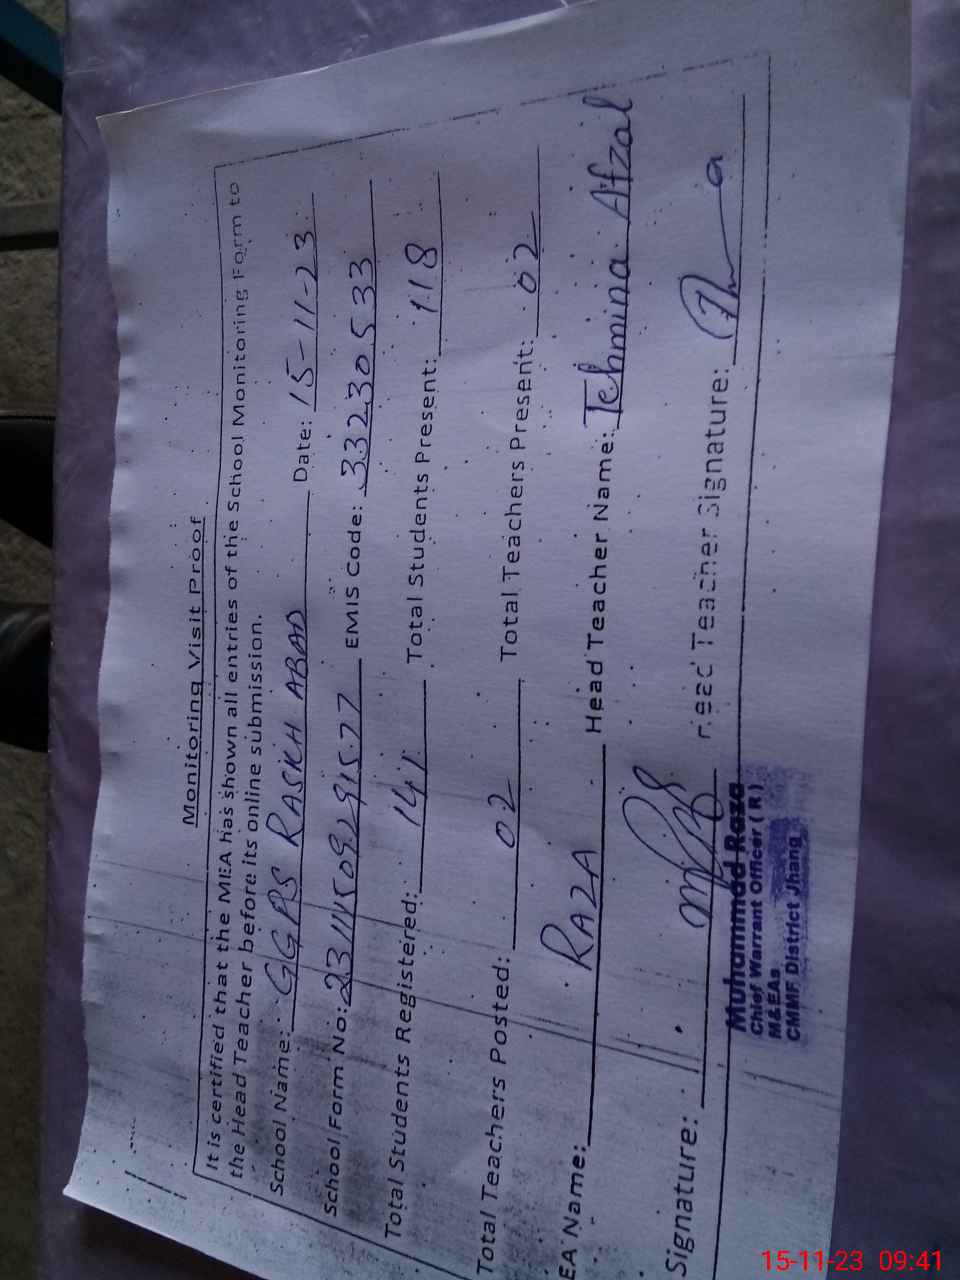 Monitoring Visit Proof
It is certified that the MEA has shown all entries of the School Monitoring Form to
the Head Teacher before its online submission.
School Name: GGPS RASHH ABAD Date: 15-11-23
School Form No: EMIS Code: 33230533
Total Students Registered: 141 Total Students Present: 118
Total Teachers Posted: 02 Total Teachers Present: 02
EA Name: RAZA Head Teacher Name: Tehmina Afzal
Signature: Head Teacher Signature:
Muhammad Raza
Chief Warrant Officer ( R )
M&EAs
CMMF District Jhang
15-11-23 09:41